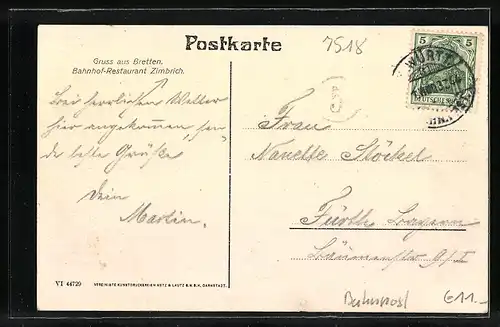 Postkarte
7518
Gruss aus Bretten.
Bahnhof-Restaurant Zimbrich.
Bei herrlichem Wetter
hier angekommen, sen-
de beste Grüße
Dein
Martin.
Frau
Nanette Stöckel
Fürth Bayern
5 5
WÜRTT
DEUTSCHES
VI 44729
VEREINIGTE KUNSTDRUCKEREIEN METZ & LAUTZ G.M.B.H. DARMSTADT.
Bahnpost
611.-